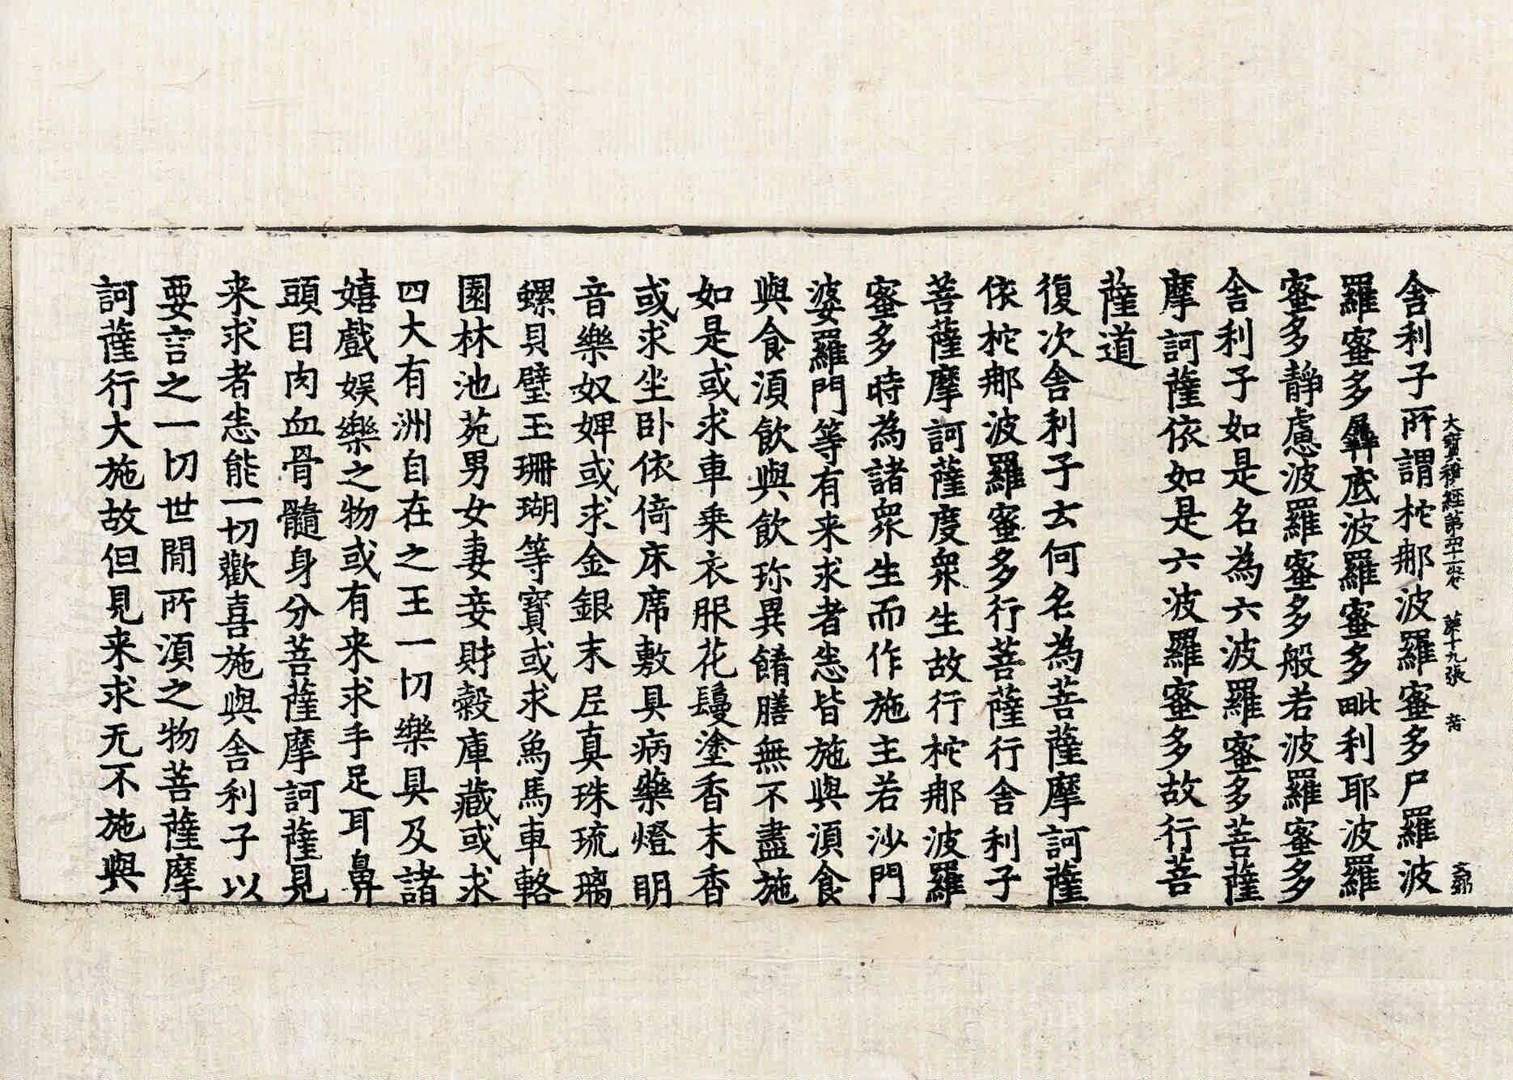 大寶積經第四十一卷 第十九張
舍利子所謂柁那波羅蜜多尸羅波
羅蜜多羼底波羅蜜多毗利耶波羅
蜜多靜慮波羅蜜多般若波羅蜜多
舍利子如是名為六波羅蜜多菩薩
摩訶薩依如是六波羅蜜多故行菩
薩道
復次舍利子云何名為菩薩摩訶薩
依柁那波羅蜜多行菩薩行舍利子
菩薩摩訶薩度衆生故行柁那波羅
蜜多時為諸衆生而作施主若沙門
婆羅門等有来求者悉皆施與湏食
與食湏飲與飲珎異餚膳無不盡施
如是或求車乗衣服花鬘塗香末香
或求坐卧依倚床席敷具病藥燈明
音樂奴婢或求金銀末尼真珠琉璃
螺貝璧玉珊瑚等寶或求象馬車輅
園林池苑男女妻妾財穀庫藏或求
四大有洲自在之王一切樂具及諸
嬉戲娛樂之物或有来求手足耳鼻
頭目肉血骨髓身分菩薩摩訶薩見
来求者悉能一切歡喜施與舍利子以
要言之一切世閒所湏之物菩薩摩
訶薩行大施故但見来求无不施與